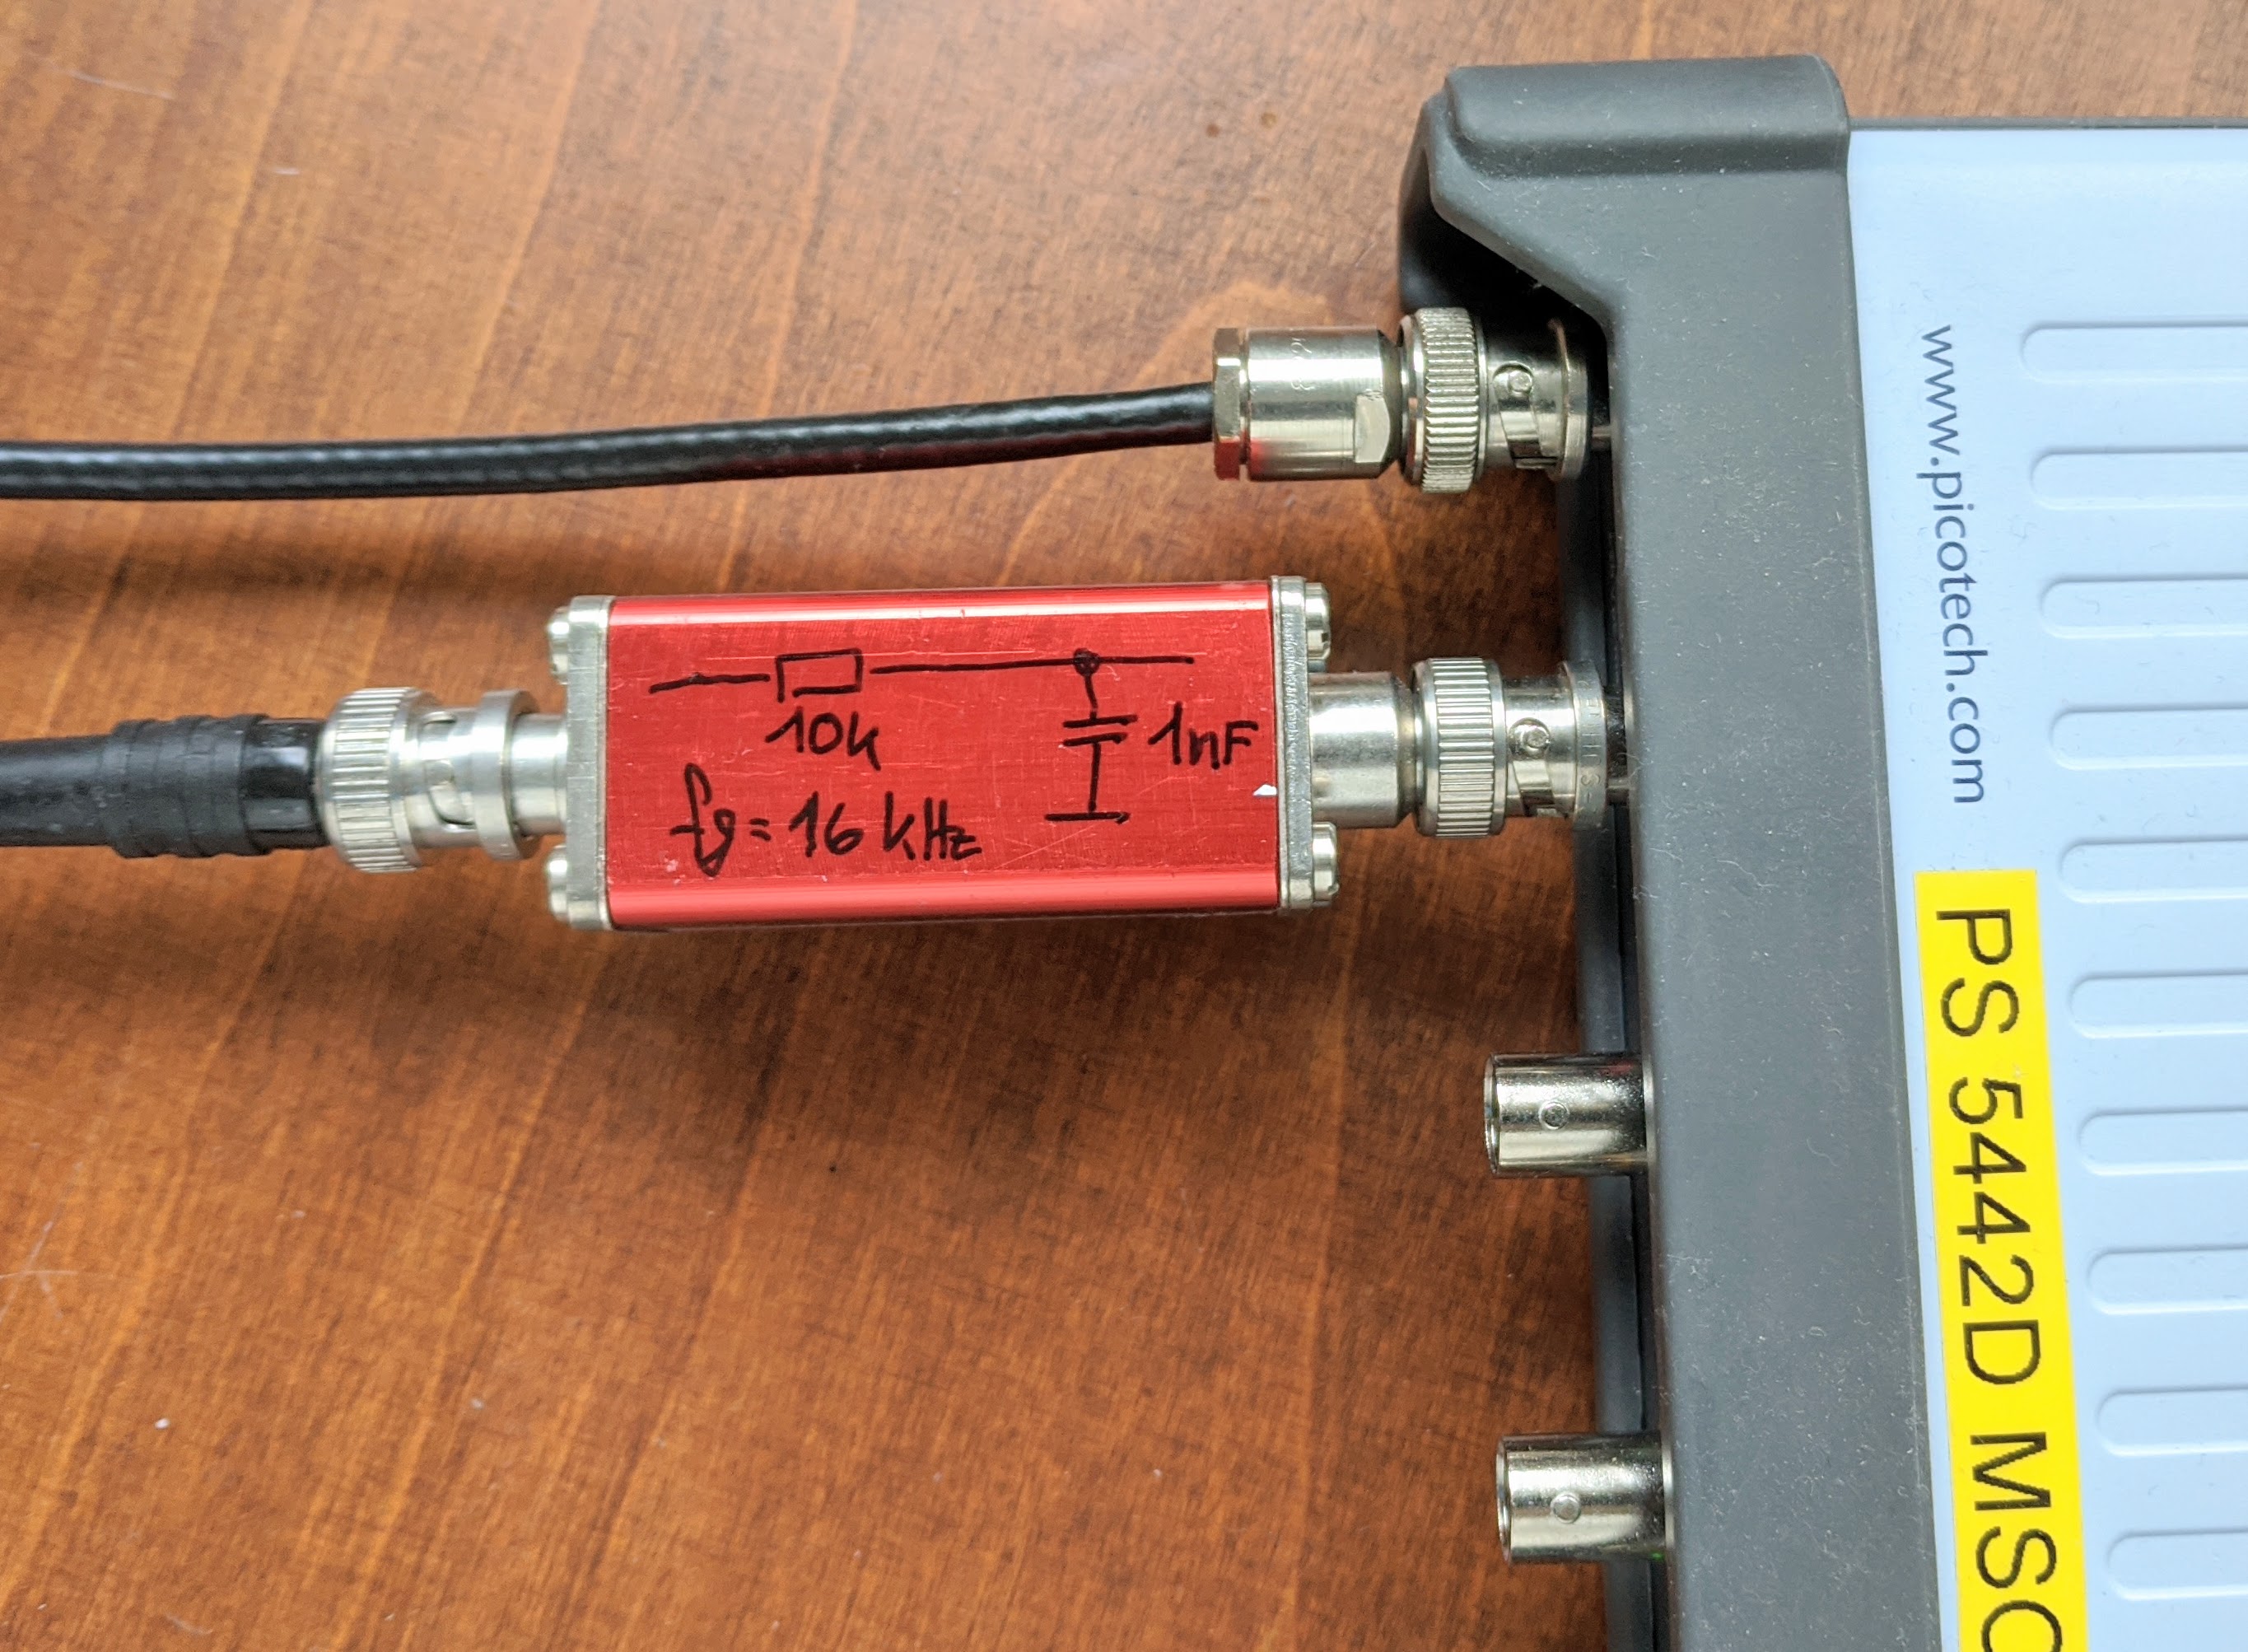 10k
1nF
fg = 16 kHz
www.picotech.com
PS 5442D MSO